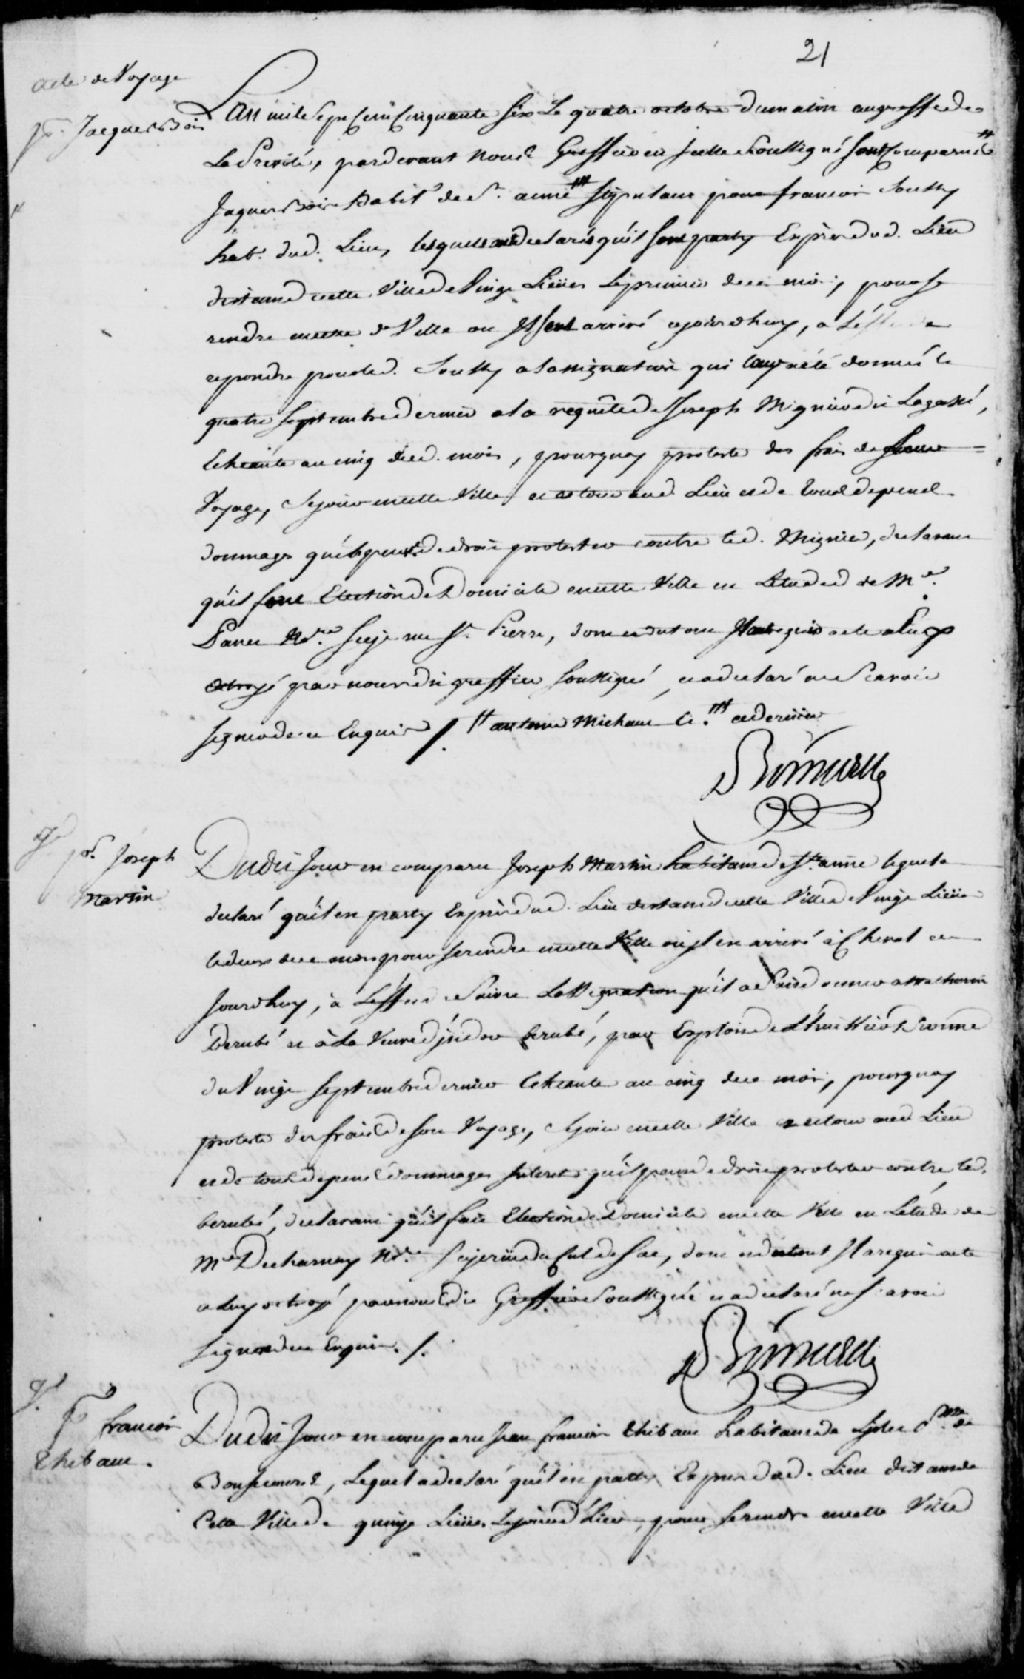 21
acte de Voyage
pr. Jacques Bois
L'an mile Sept Cent Cinquante Six Le quatre octobre du matin au greffe de
La Prevôté, pardevant Nous Greffier en jcelle soussigné sont Comparus
Jaques Bois habit. de Ste. anne stipulant pour francois Soussy
habt. dud. Lieu, lesquels ont declaré qu'ils sont party Exprès dud. Lieu
distant de cette Ville de Vingt Lieües le premier de ce mois, pour se
rendre en cette de. Ville ou Ils sont arrivé ajourdhuy, a L'effet de
repondre pour led. Soussy a lassignation qui luy a été donnée le
quatre Septembre dernier a la requête de Joseph Mignier dit Lagassé,
Echéante au cinq dud. mois, pourquoy proteste des frais de leur
Voyage, Sejour en cette Ville, et retour aud. Lieu et de tous depens
dommages qu'ils peuvent de droit protester contre led. Mignier, declarant
qu'ils font Election de Domicile en cette Ville en L'etude de Me.
Panet Nore. Size rue St. Pierre, dont et du tout Ils ont requis acte a Eux
octroyé par nous dit greffier soussigné, et a declaré ne Scavoir
signer de ce Enquis /. antoine Michaud et ce dernier
Boisseau
Dt. pr. Joseph
Martin
Dudit Jour en comparu Joseph Martin habitant de Ste. anne lequel a
declaré qu'il en party Exprès dud. Lieu distant de cette Ville de Vingt Lieües
le deux de ce mois pour se rendre en cette Ville ou jl en arrivé à Cheval ce
jourdhuy, à L'effet de suivre L'assignation qu'il a fait donner
berubé et à La Veuve d'jsidor berubé, par Exploit de L'huissier Dionne
du Vingt Septembre dernier Echeante au cinq de ce mois, pourquoy
proteste des frais de son Voyage, sejour en cette Ville et retour aud. Lieu
et de tous depens dommages jnterets qu'il peut de droit protester contre led.
berubé, declarant qu'il fait Election de Domicile en cette Ville en L'étude de
Me Decharnay Nore. Size rüe du Cul de Sac, dont et du tout Il a requis acte
a luy octroyé par nous dit Greffier Soussigné et a declaré ne Scavoir
signer de ce Enquis. /.
Boisseau
Dt.
pr. francois
Thibaut.
Dudit Jour en comparu Jean francois Thibaut habitant de
Bonsecours, Lequel a declaré qu'il en party Exprès dud. Lieu distant de
Cette Ville de quinze Lieües, pour se rendre en cette Ville